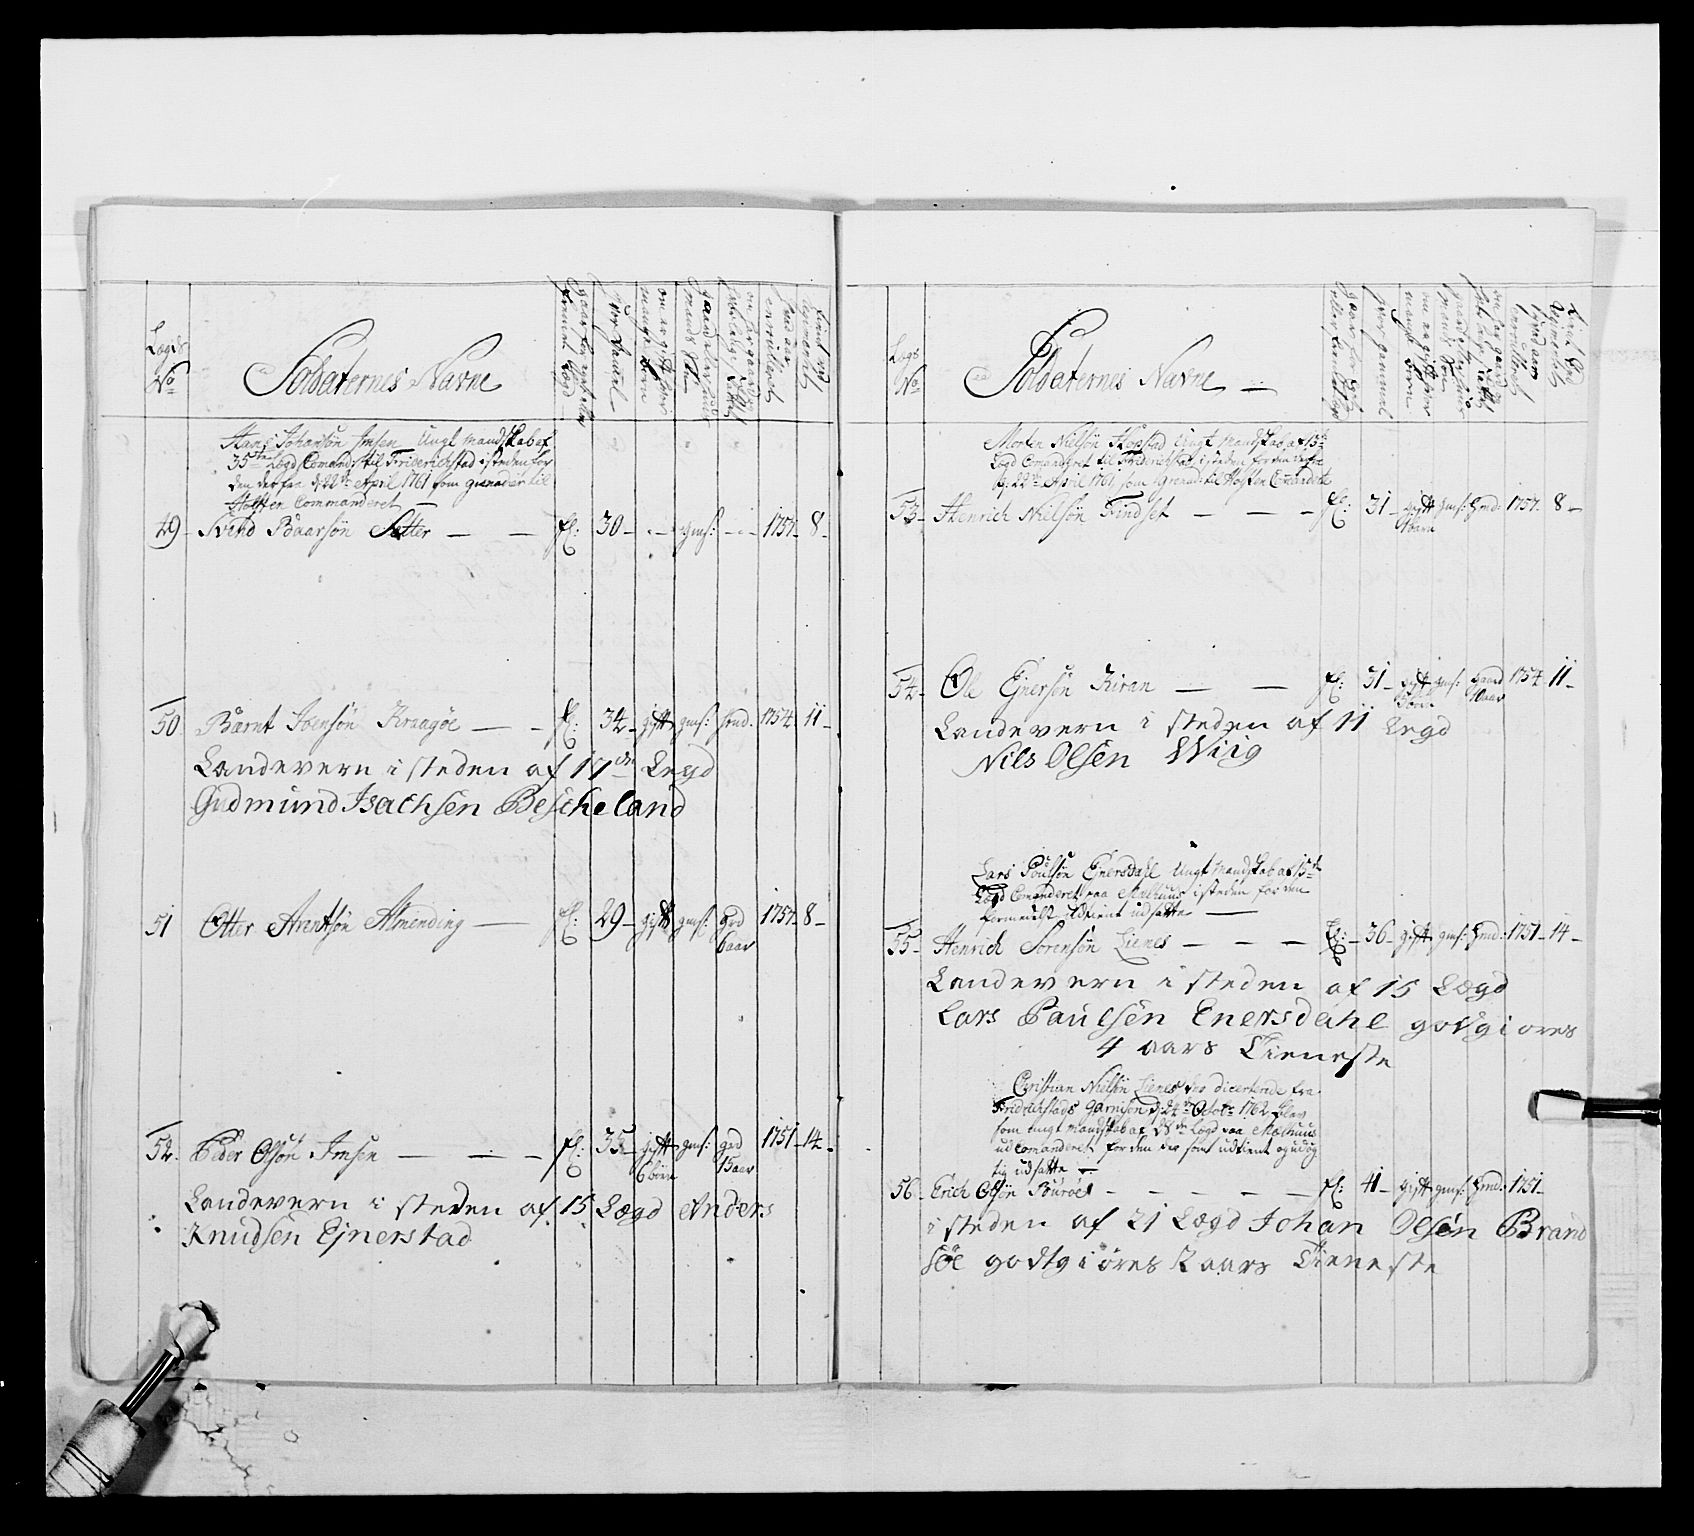 Lægds No
Soldaternes Navne
Hans Johansön Jmsen Ungt Mandskab af
35te Lægd Comand: til Friderichstad isteden for
den derfra d: 22de April 1761 som grenader til
Holsten Commanderet
49 Svend Baarsön Sætter — — fl: 30 - - gms: - - 1757 8
50 Barnt Ibensön Kraagöe — — fl: 34 gift gms: hmd. 1754 11
Landevern i steden af 11de Legd
Gudmund Isachsen Bescheland
51 Otter Arentsön Almending — fl: 29 gift gms: grd 1757 8
6 aar
52 Peder Olsön Jmsen — — — fl: 35 gift gms: grd 1751 14
6 börn 15 aar
Landevern i steden af 15 Lægd Anders
Knudsen Ejnerstad
Lægds No
Soldaternes Navne —
Morten Nielsön Hopstad Ungt Mandskab af 15de
Lægd Comanderet til Friderichstad, i steden for den derfra
d: 22de April 1761 som Grenad: til Holsten Comanderet
53 Henrich Nielsön Findset — — — fl: 31 gift gms: hmd: 1757 8
1 barn
54 Ole Ejnersön Kiran — — fl: 31 gift gms: 1754 11
Landevern i steden af 11 Legd
Nils Olsen Wiig
Lars Poulsön Ejnersdahl Ungt Mandskab af 15de
Lægd Comanderet paa Melhuus isteden for den
formedelst udtient udsatte —
55 Henrich Sorensön Lienes — — — fl: 36 gift gms: hmd: 1751 14
Landevern i steden af 15 Lægd
Lars Paulsen Enersdahl godgiores
4 aars Tieneste
Christian Nielsön Lienes der dicerterede fra
Fridrichstads Garnison d: 24de Octobr 1762 blev
som ungt Mandskab af 28de Lægd paa Melhuus
udComanderet for den der som udtient og udög
tig udsatte —
56 Erich Olsön Buröes — — — — — fl: 41 gift gms: hmd: 1751
i steden af 21 Lægd Johan Olsön Brand
söe godtgiöres 2 aars Tieneste